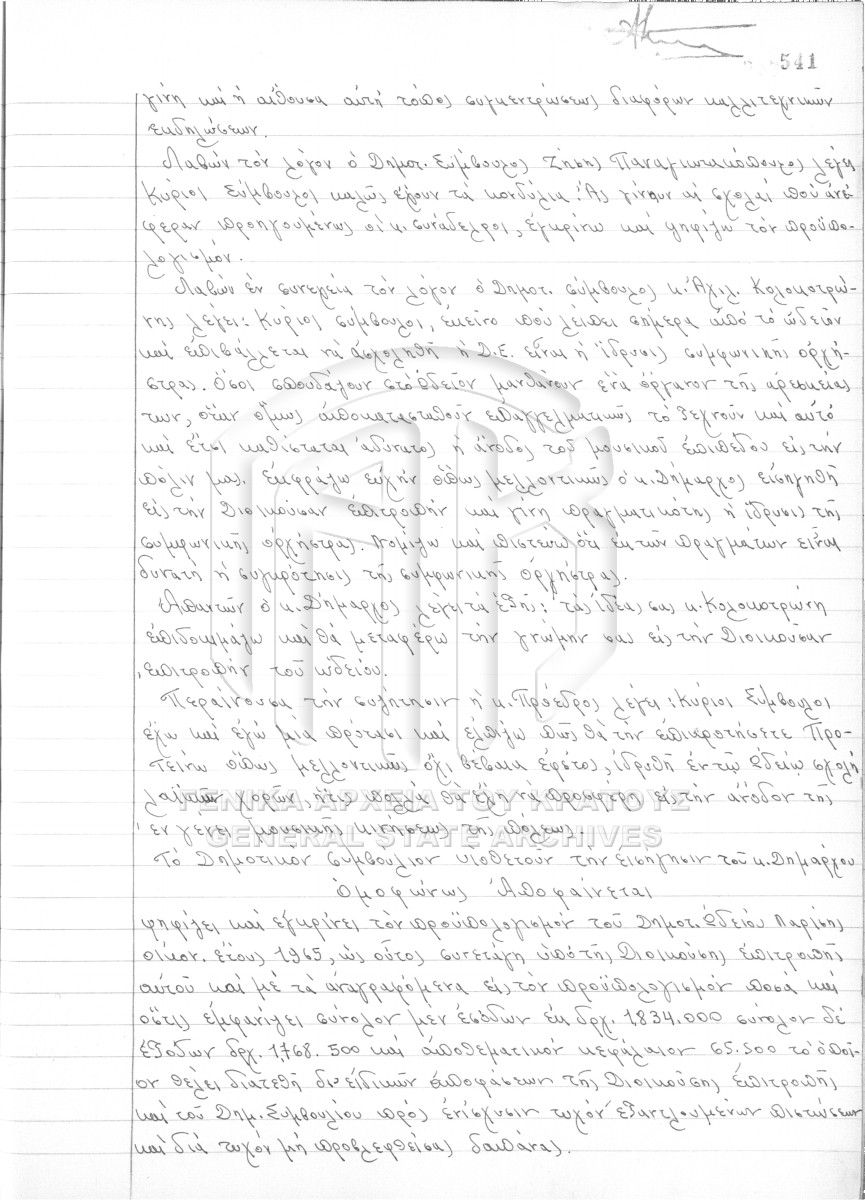 541
γίνη καί ἡ αἴθουσα αὐτή τόπος συγκεντρώσεως διαφόρων καλλιτεχνικῶν
ἐκδηλώσεων.
Λαβών τόν λόγον ὁ Δημοτ. Σύμβουλος Ζήσης Παναγιωτακόπουλος λέγει
Κύριοι Σύμβουλοι καλῶς ἔχουν τά κονδύλια. Ἄς γίνουν αἱ σχολαί πού ἀνέ
φεραν προηγουμένως οἱ κ. συνάδελφοι, ἐγκρίνω καί ψηφίζω τόν προϋπο-
λογισμόν.
Λαβών ἐν συνεχεία τόν λόγον ὁ Δημοτ. σύμβουλος κ. Ἀχιλ. Κολοκοτρώ-
νης λέγει: Κύριοι σύμβουλοι, ἐκεῖνο πού λείπει σήμερα ἀπό τό ὠδεῖον
καί ἐπιβάλλεται νά ἀσχοληθῆ ἡ Δ.Ε. εἶναι ἡ ἵδρυσις συμφωνικῆς ὀρχή-
στρας. Ὅσοι σπουδάζουν στό Ὠδεῖον μανθάνουν ἕνα ὄργανον τῆς ἀρεσκείας
των, ὅταν ὅμως ἀποκατασταθοῦν ἐπαγγελματικῶς τό ξεχνοῦν καί αὐτό
καί ἔτσι καθίσταται ἀδύνατος ἡ ἄνοδος τοῦ μουσικοῦ ἐπιπέδου εἰς τήν
πόλιν μας. Ἐκφράζω εὐχήν ὅπως μελλοντικῶς ὁ κ. Δήμαρχος εἰσηγηθῆ
εἰς τήν Διοικοῦσαν ἐπιτροπήν καί γίνη πραγματικότης ἡ ἵδρυσις τῆς
συμφωνικῆς ὀρχήστρας. Νομίζω καί πιστεύω ὅτι ἐκ τῶν πραγμάτων εἶναι
δυνατή ἡ συγκρότησις τῆς συμφωνικῆς ὀρχήστρας.
Ἀπαντῶν ὁ κ. Δήμαρχος λέγει τά ἑξῆς: τάς ἰδέας σας κ. Κολοκοτρώνη
ἐπιδοκιμάζω καί θά μεταφέρω τήν γνώμην σας εἰς τήν Διοικοῦσαν
ἐπιτροπήν τοῦ ὠδείου.
Περαίνουσα τήν συζήτησιν ἡ κ. Πρόεδρος λέγει: Κύριοι Σύμβουλοι
ἔχω καί ἐγώ μία πρότασι καί ἐλπίζω πῶς θά τήν ἐπικροτήσετε Προ-
τείνω ὅπως μελλοντικῶς ὄχι βέβαια ἐφέτος, ἱδρυθῆ ἐν τῷ Ὠδείῳ σχολή
λαϊκῶν χορῶν, ἥτις πολλά θά ἔχη νά προσφέρη εἰς τήν ἄνοδον τῆς
ἐν γένει μουσικῆς κινήσεως τῆς πόλεως.
ΓΕΝΙΚΑ ΑΡΧΕΙΑ ΤΟΥ ΚΡΑΤΟΥΣ
GENERAL STATE ARCHIVES
Τό Δημοτικόν συμβούλιον υἱοθετοῦν τήν εἰσήγησιν τοῦ κ. Δημάρχου
Ὁμοφώνως Ἀποφαίνεται
ψηφίζει καί ἐγκρίνει τόν προϋπολογισμόν τοῦ Δημοτ. Ὠδείου Λαρίσης
οἰκον. ἔτους 1965, ὡς οὗτος συνετάγη ὑπό τῆς Διοικούσης ἐπιτροπῆς
αὐτοῦ καί μέ τά ἀναγραφόμενα εἰς τόν προϋπολογισμόν ποσά καί
ὅστις ἐμφανίζει σύνολον μέν ἐσόδων ἐκ δρχ. 1,834.000 σύνολον δέ
ἐξόδων δρχ. 1,768.500 καί ἀποθεματικόν κεφάλαιον 65.500 τό ὁποῖ-
ον θέλει διατεθῆ δι' εἰδικῶν ἀποφάσεων τῆς Διοικούσης ἐπιτροπῆς
καί τοῦ Δημ. Συμβουλίου πρός ἐνίσχυσιν τυχόν ἐξαντλουμένων πιστώσεων
καί διά τυχόν μή προβλεφθείσας δαπάνας.